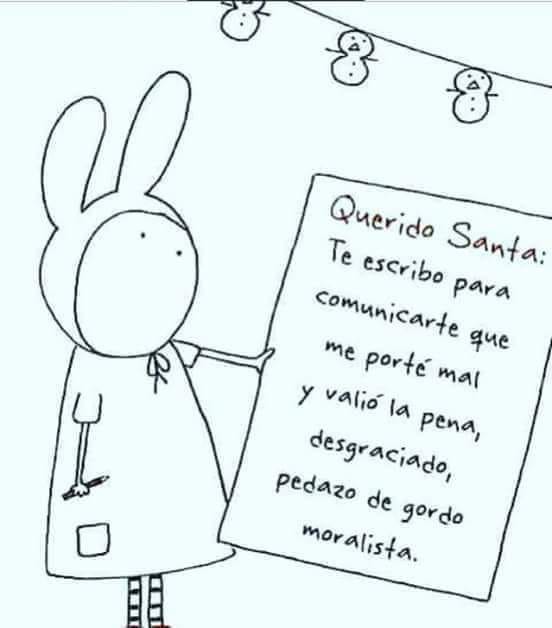 Querido Santa:
Te escribo para
comunicarte que
me porté mal
y valió la pena,
desgraciado,
pedazo de gordo
moralista.